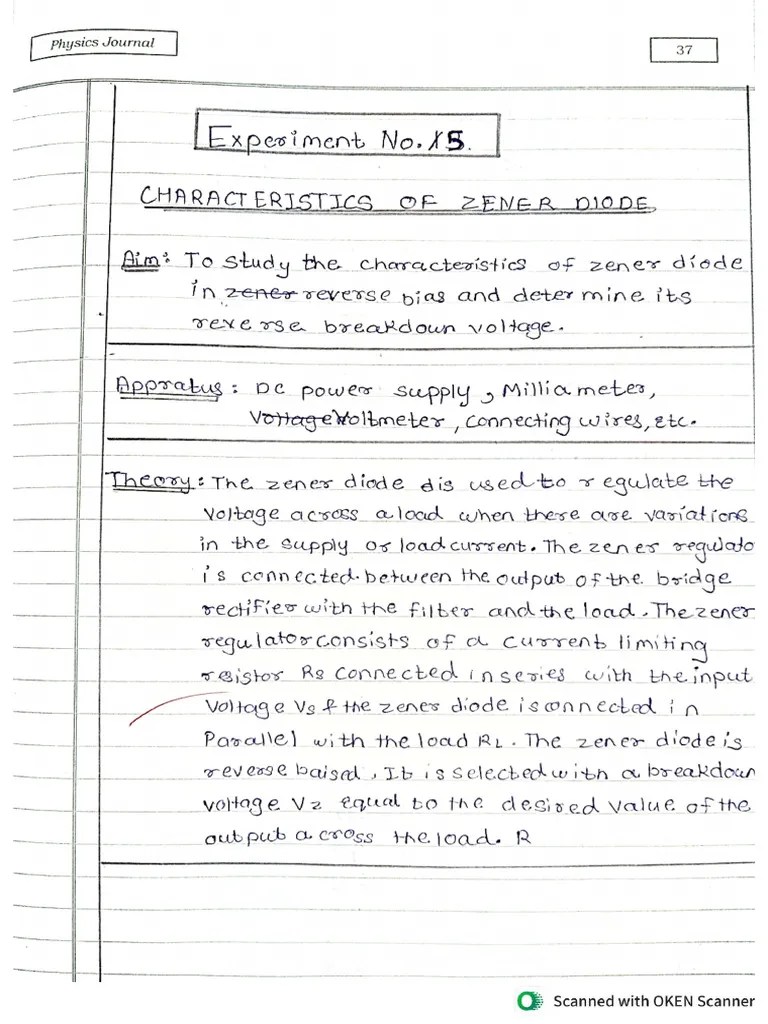 Physics Journal
37
Experiment No. 15.
CHARACTERISTICS OF ZENER DIODE
Aim: To study the characteristics of zener diode
in zener reverse bias and determine its
reverse breakdown voltage.
Appratus: DC power supply, Milliameter,
Voltage Voltmeter, connecting wires, Etc.
Theory: The zener diode dis used to regulate the
voltage across a load when there are variations
in the supply or load current. The zener regulato
is connected between the output of the bridge
rectifier with the filter and the load. The zener
regulator consists of a current limiting
resistor Rs connected in series with the input
Voltage Vs & the zener diode is onnected in
Parallel with the load RL. The zener diode is
reverse baised, It is selected with a breakdown
voltage Vz equal to the desired value of the
output a cross the load. R
Scanned with OKEN Scanner